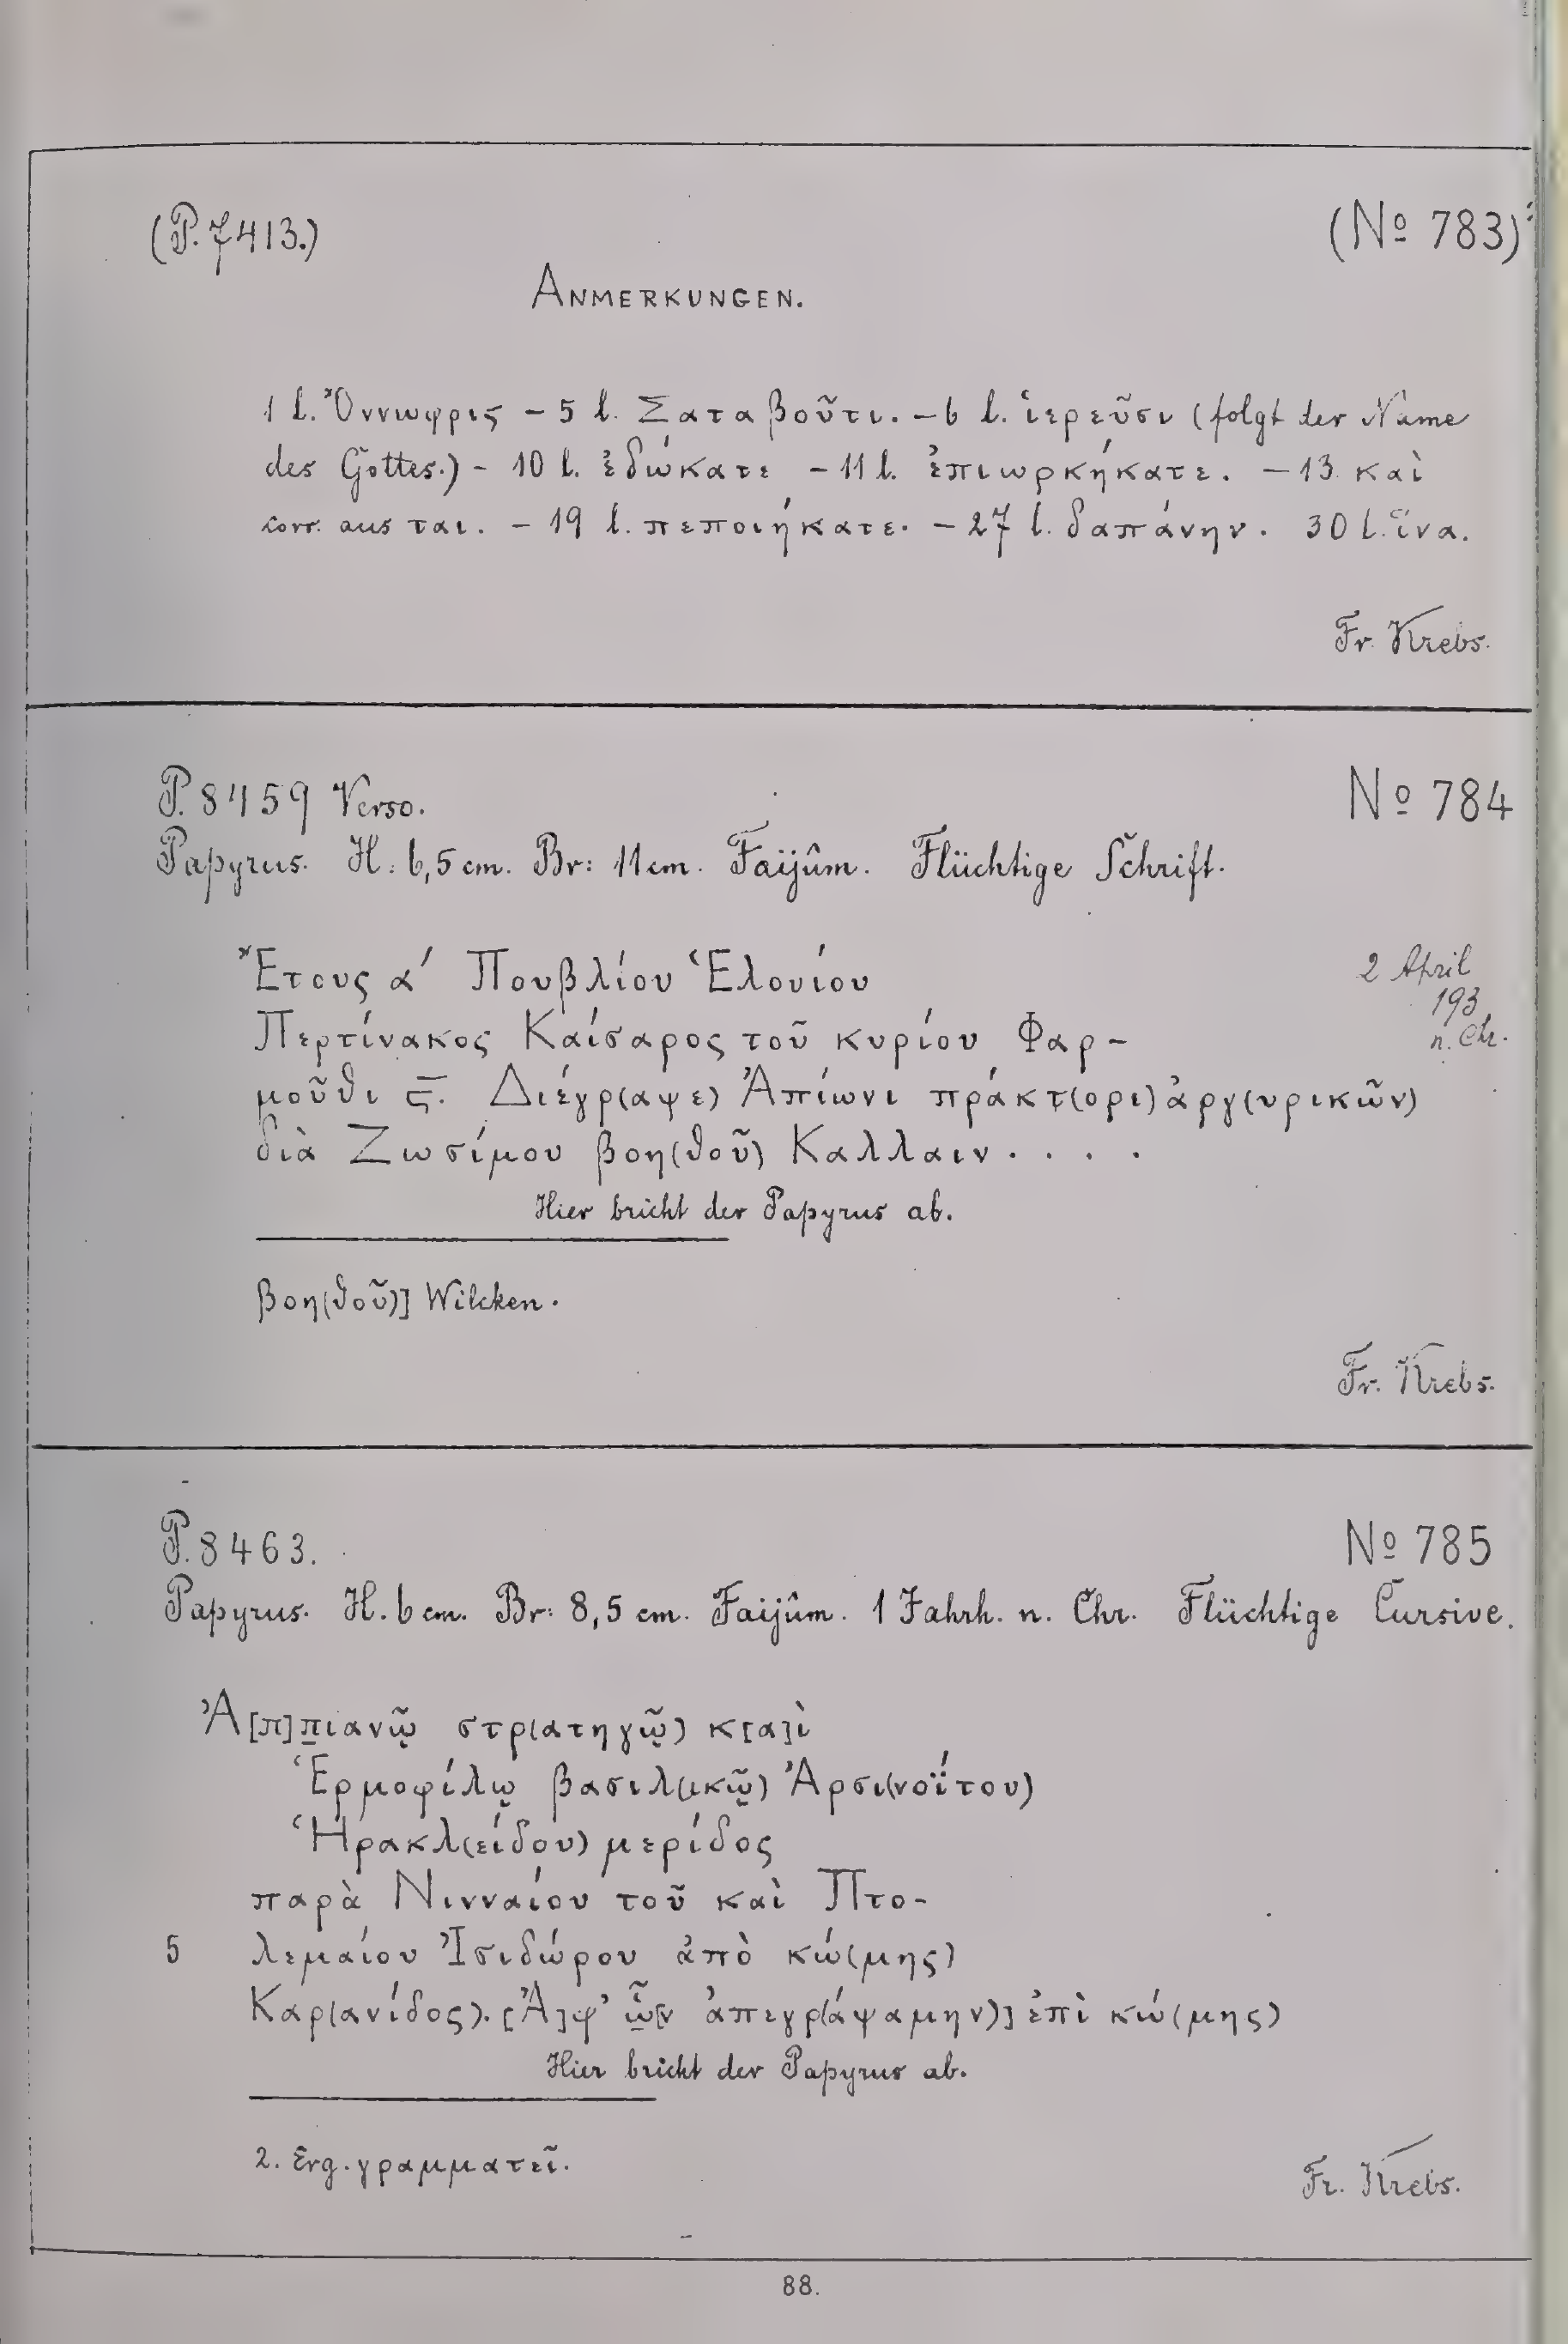 (P. 7413.)
(№ 783)
ANMERKUNGEN.
1 l. Ὄννωφρις – 5 l. Σαταβοῦτι. – 6 l. ἱερεῦσι (folgt der Name
des Gottes.) – 10 l. ἐδώκατε – 11 l. ἐπιωρκήκατε. – 13. καὶ
corr. aus ται. – 19 l. πεποιήκατε. – 27 l. δαπάνην. 30 l. ἵνα.
Fr. Krebs.
P. 8459 Verso.
№ 784
Papyrus. H: 6,5 cm. Br: 11 cm. Faijûm. Flüchtige Schrift.
Ἔτους α´ Πουβλίου Ἑλουίου
2 April
193
n. Chr.
Περτίνακος Καίσαρος τοῦ κυρίου Φαρ-
μοῦθι ϛ̅. Διέγρ(αψε) Ἀπίωνι πράκτ(ορι) ἀργ(υρικῶν)
διὰ Ζωσίμου βοη(θοῦ) Καλλαιν . . . .
Hier bricht der Papyrus ab.
βοη(θοῦ)] Wilcken.
Fr. Krebs.
P. 8463.
№ 785
Papyrus. H. 6 cm. Br: 8,5 cm. Faijûm. 1 Jahrh. n. Chr. Flüchtige Cursive.
Ἀ[π]π̲ιανῷ στρ(ατηγῷ) κ[α]ὶ
Ἑρμοφίλῳ βασιλ(ικῷ) Ἀρσι(νοΐτου)
Ἡρακλ(είδου) μερίδος
παρὰ Νινναίου τοῦ καὶ Πτο-
5 λεμαίου Ἰσιδώρου ἀπὸ κώ(μης)
Καρ(ανίδος). [Ἀ]φ’ ὧ̲[ν ἀπεγρ(άψαμην)] ἐπὶ κώ(μης)
Hier bricht der Papyrus ab.
2. Erg. γραμματεῖ.
Fr. Krebs.
88.